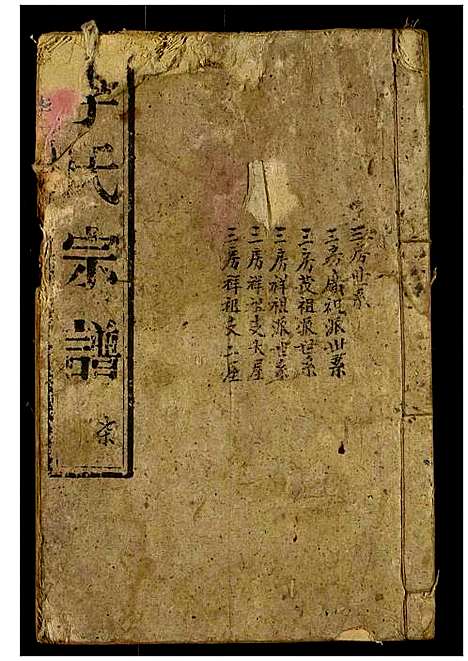 三房世系
三房廣祖派世系
三房茂祖派世系
三房祥祖派世系
三房祥公支下屋
三房祥祖支上屋
李氏宗譜
柒